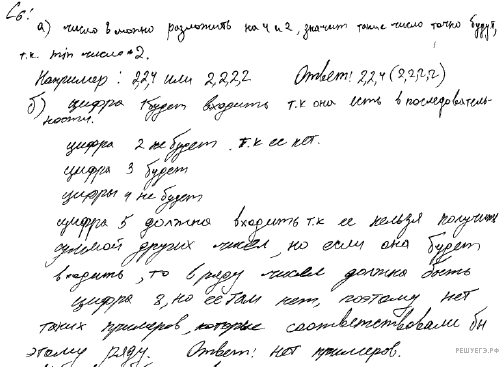 C6:
а) число 8 можно разложить на 4 и 2, значит такие числа точно будут,
т.к. min число 2.
Например: 2,2,4 или 2,2,2,2 Ответ: 2,2,4 (2,2,2,2)
б) цифра 1 будет входить т.к она есть в последователь-
ности.
цифра 2 не будет т.к ее нет.
цифра 3 будет
цифры 4 не будет
цифра 5 должна входить т.к ее нельзя получить
суммой других чисел, но если она будет
входить, то в ряду чисел должна быть
цифра 8, но ее там нет, поэтому нет
таких примеров, которые соответствовали бы
этому ряду. Ответ: нет примеров.
РЕШУЕГЭ.РФ